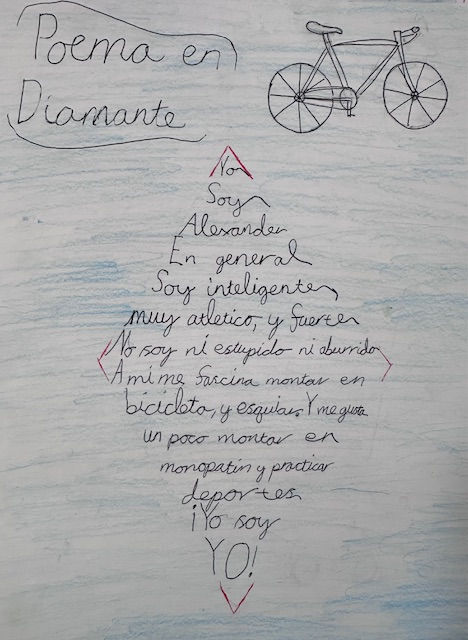 Poema en
Diamante
Yo
Soy
Alexander
En general
Soy inteligente
muy atletico, y fuerte
No soy ni estupido ni aburrido
A mi me fascina montar en
bicicleta, y esquiar. Y me gusta
un poco montar en
monopatín y practicar
deportes
¡Yo soy
YO!